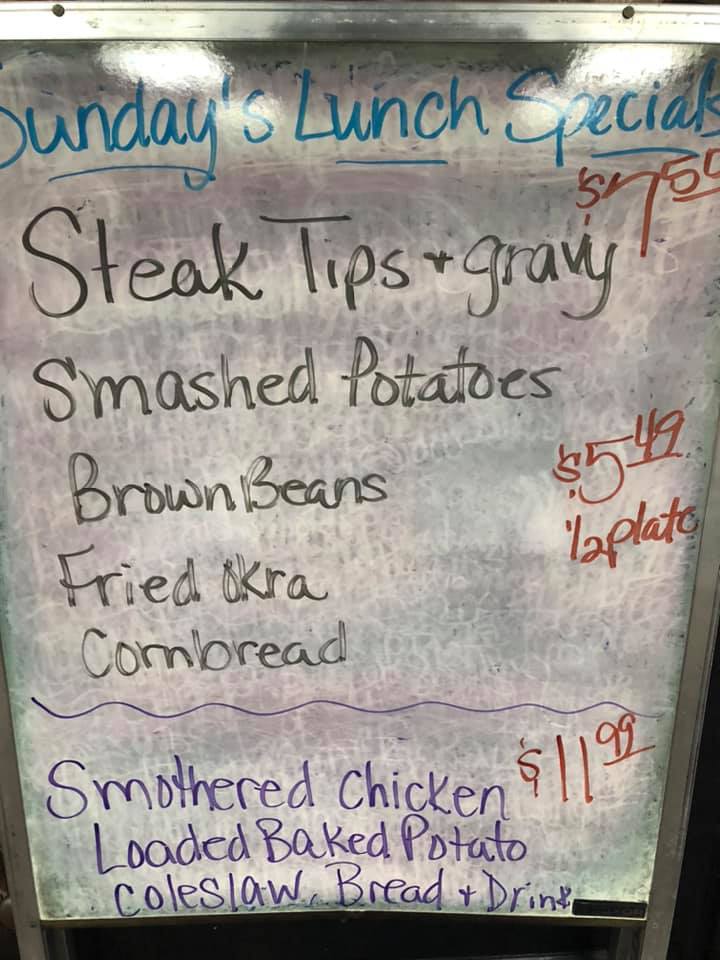 Sunday's Lunch Specials
Steak Tips + gravy
Smashed Potatoes
Brown Beans
$5.49
1/2 plate
Fried Okra
Cornbread
Smothered Chicken $11.99
Loaded Baked Potato
Coleslaw, Bread + Drink